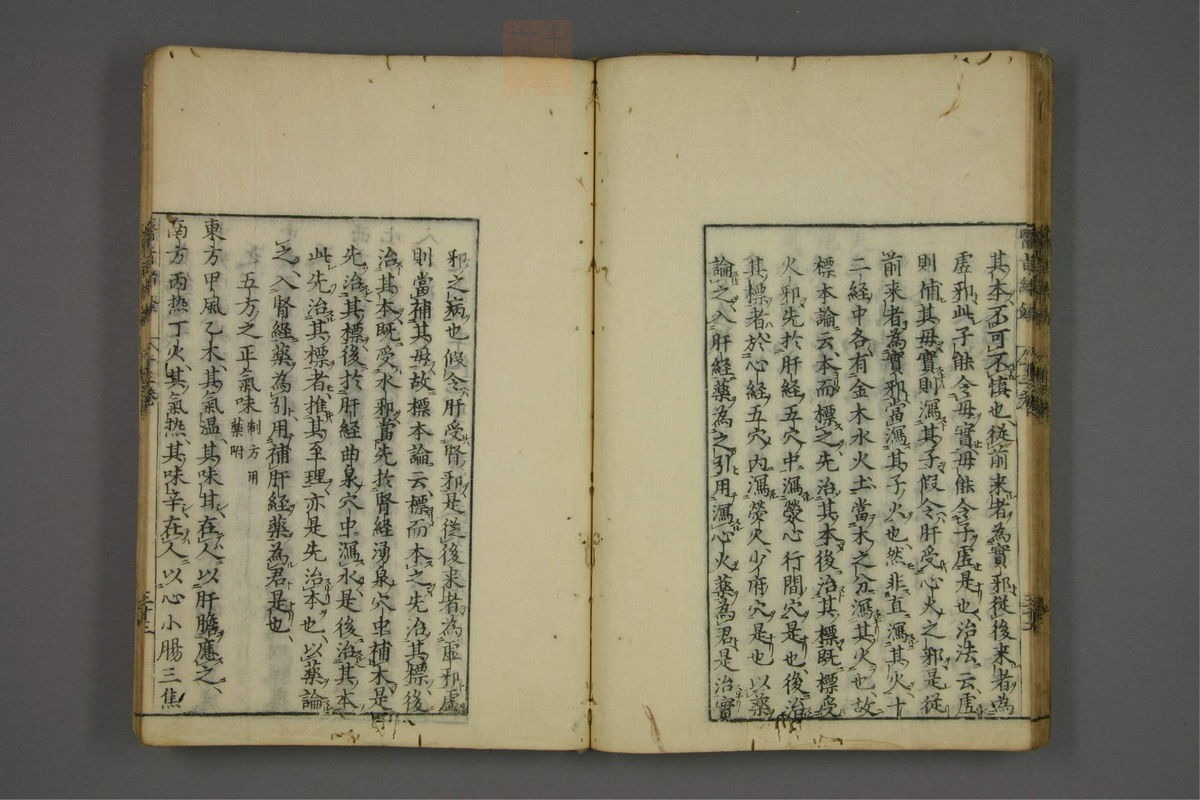 其本不可不慎也従前来者為實邪従後来者為
虚邪此子能令母實母能令子虚是也治法云虚
則補其母實則瀉其子假令肝受心火之邪是従
前来者為實邪當瀉其子火也然非直瀉其火十
二経中各有金木水火土當木之分瀉其火也故
標本論云本而標之先治其本後治其標既標受
火邪先於肝経五穴中瀉滎心行間穴是也後治
其標者於心経五穴内瀉滎火少府穴是也以藥
論之入肝経藥為之引用瀉心火藥為君是治實
邪之病也假令肝受腎邪是従後来者為虚邪虚
則當補其母故標本論云標而本之先治其標後
治其本既受水邪當先於腎経湧泉穴中補木是
先治其標後於肝経曲泉穴中瀉水是後治其本
此先治其標者推其至理亦是先治本也以藥論
之入腎経藥為引用補肝経藥為君是也
五方之正氣味制方用藥附
東方甲風乙木其氣温其味甘在人以肝膽應之
南方丙热丁火其氣热其味辛在人以心小腸三焦